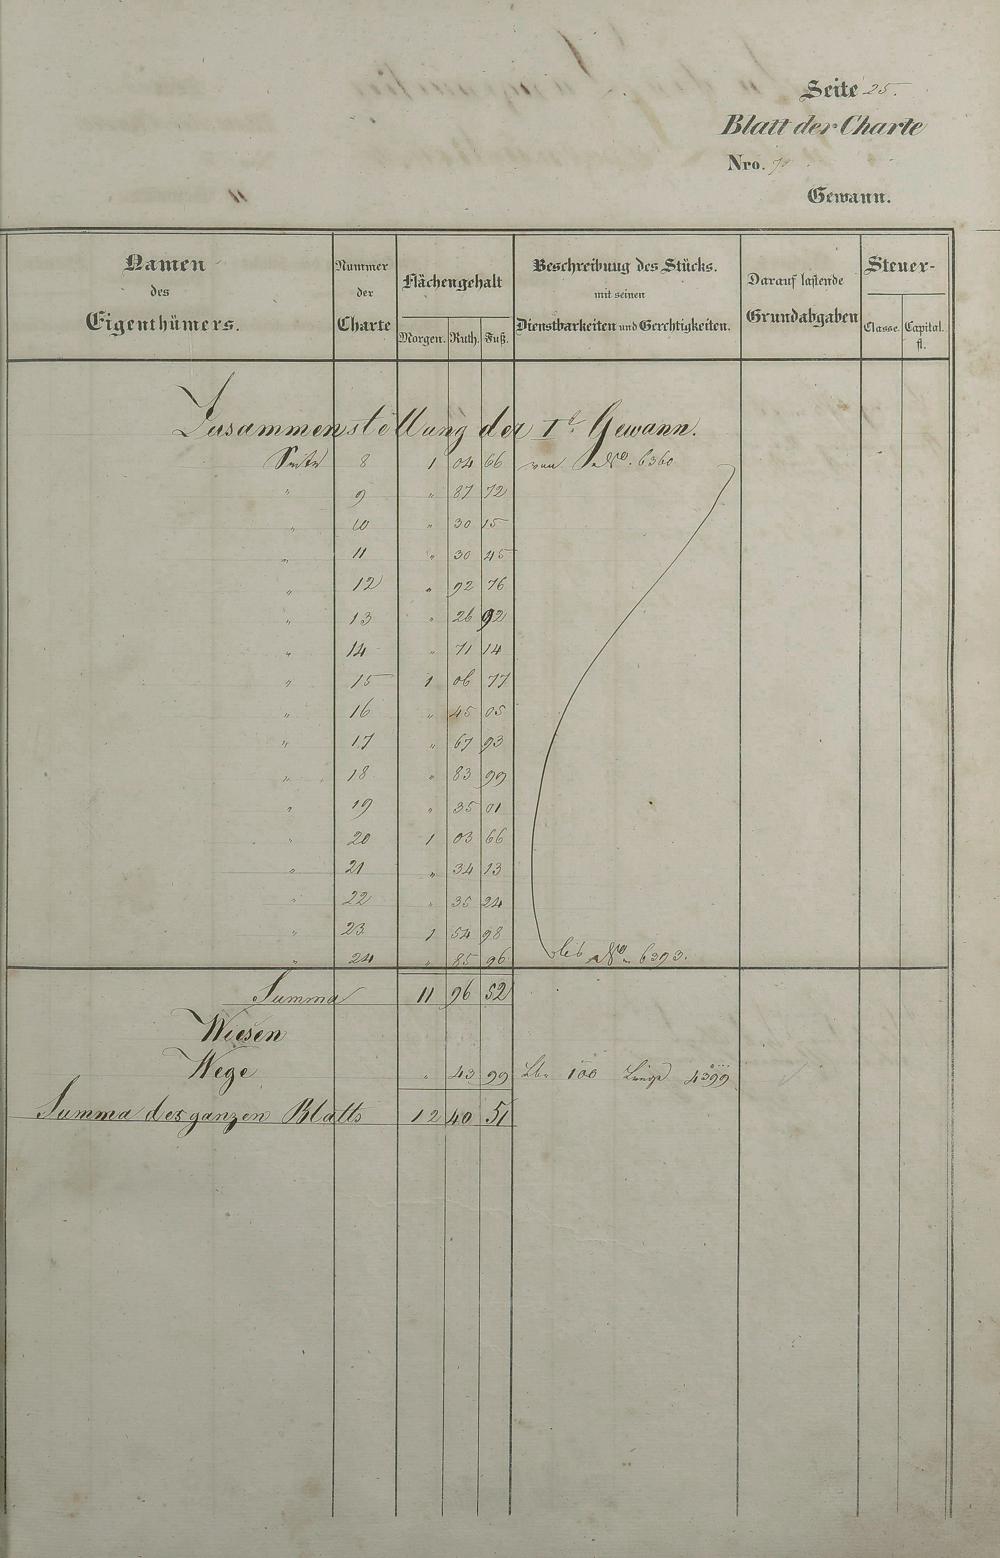 Seite 25.
Blatt der Charte
Nro.
Gewann.
Namen des Eigenthümers.
Nummer der Charte
Flächengehalt
Morgen. Ruth. Fuß.
Beschreibung des Stücks. mit seinen Dienstbarkeiten und Gerechtigkeiten.
Darauf lastende Grundabgaben
Steuer-
Classe. Capital. fl.
Zusammenstellung der Iᵗ. Gewann.
Seite 8 1 04 66 von No. 6360
" 9 " 87 72
" 10 " 30 15
" 11 " 30 45
" 12 " 92 76
" 13 " 26 92
" 14 " 71 14
" 15 1 06 77
" 16 " 45 05
" 17 " 67 93
" 18 " 83 99
" 19 " 35 01
" 20 1 03 66
" 21 " 34 13
" 22 " 35 24
" 23 1 54 98
" 24 " 85 96 bis No. 6393.
Summa 11 96 52
Wiesen
Wege " 43 99 100 Länge 4399
Summa des ganzen Blatts 12 40 51